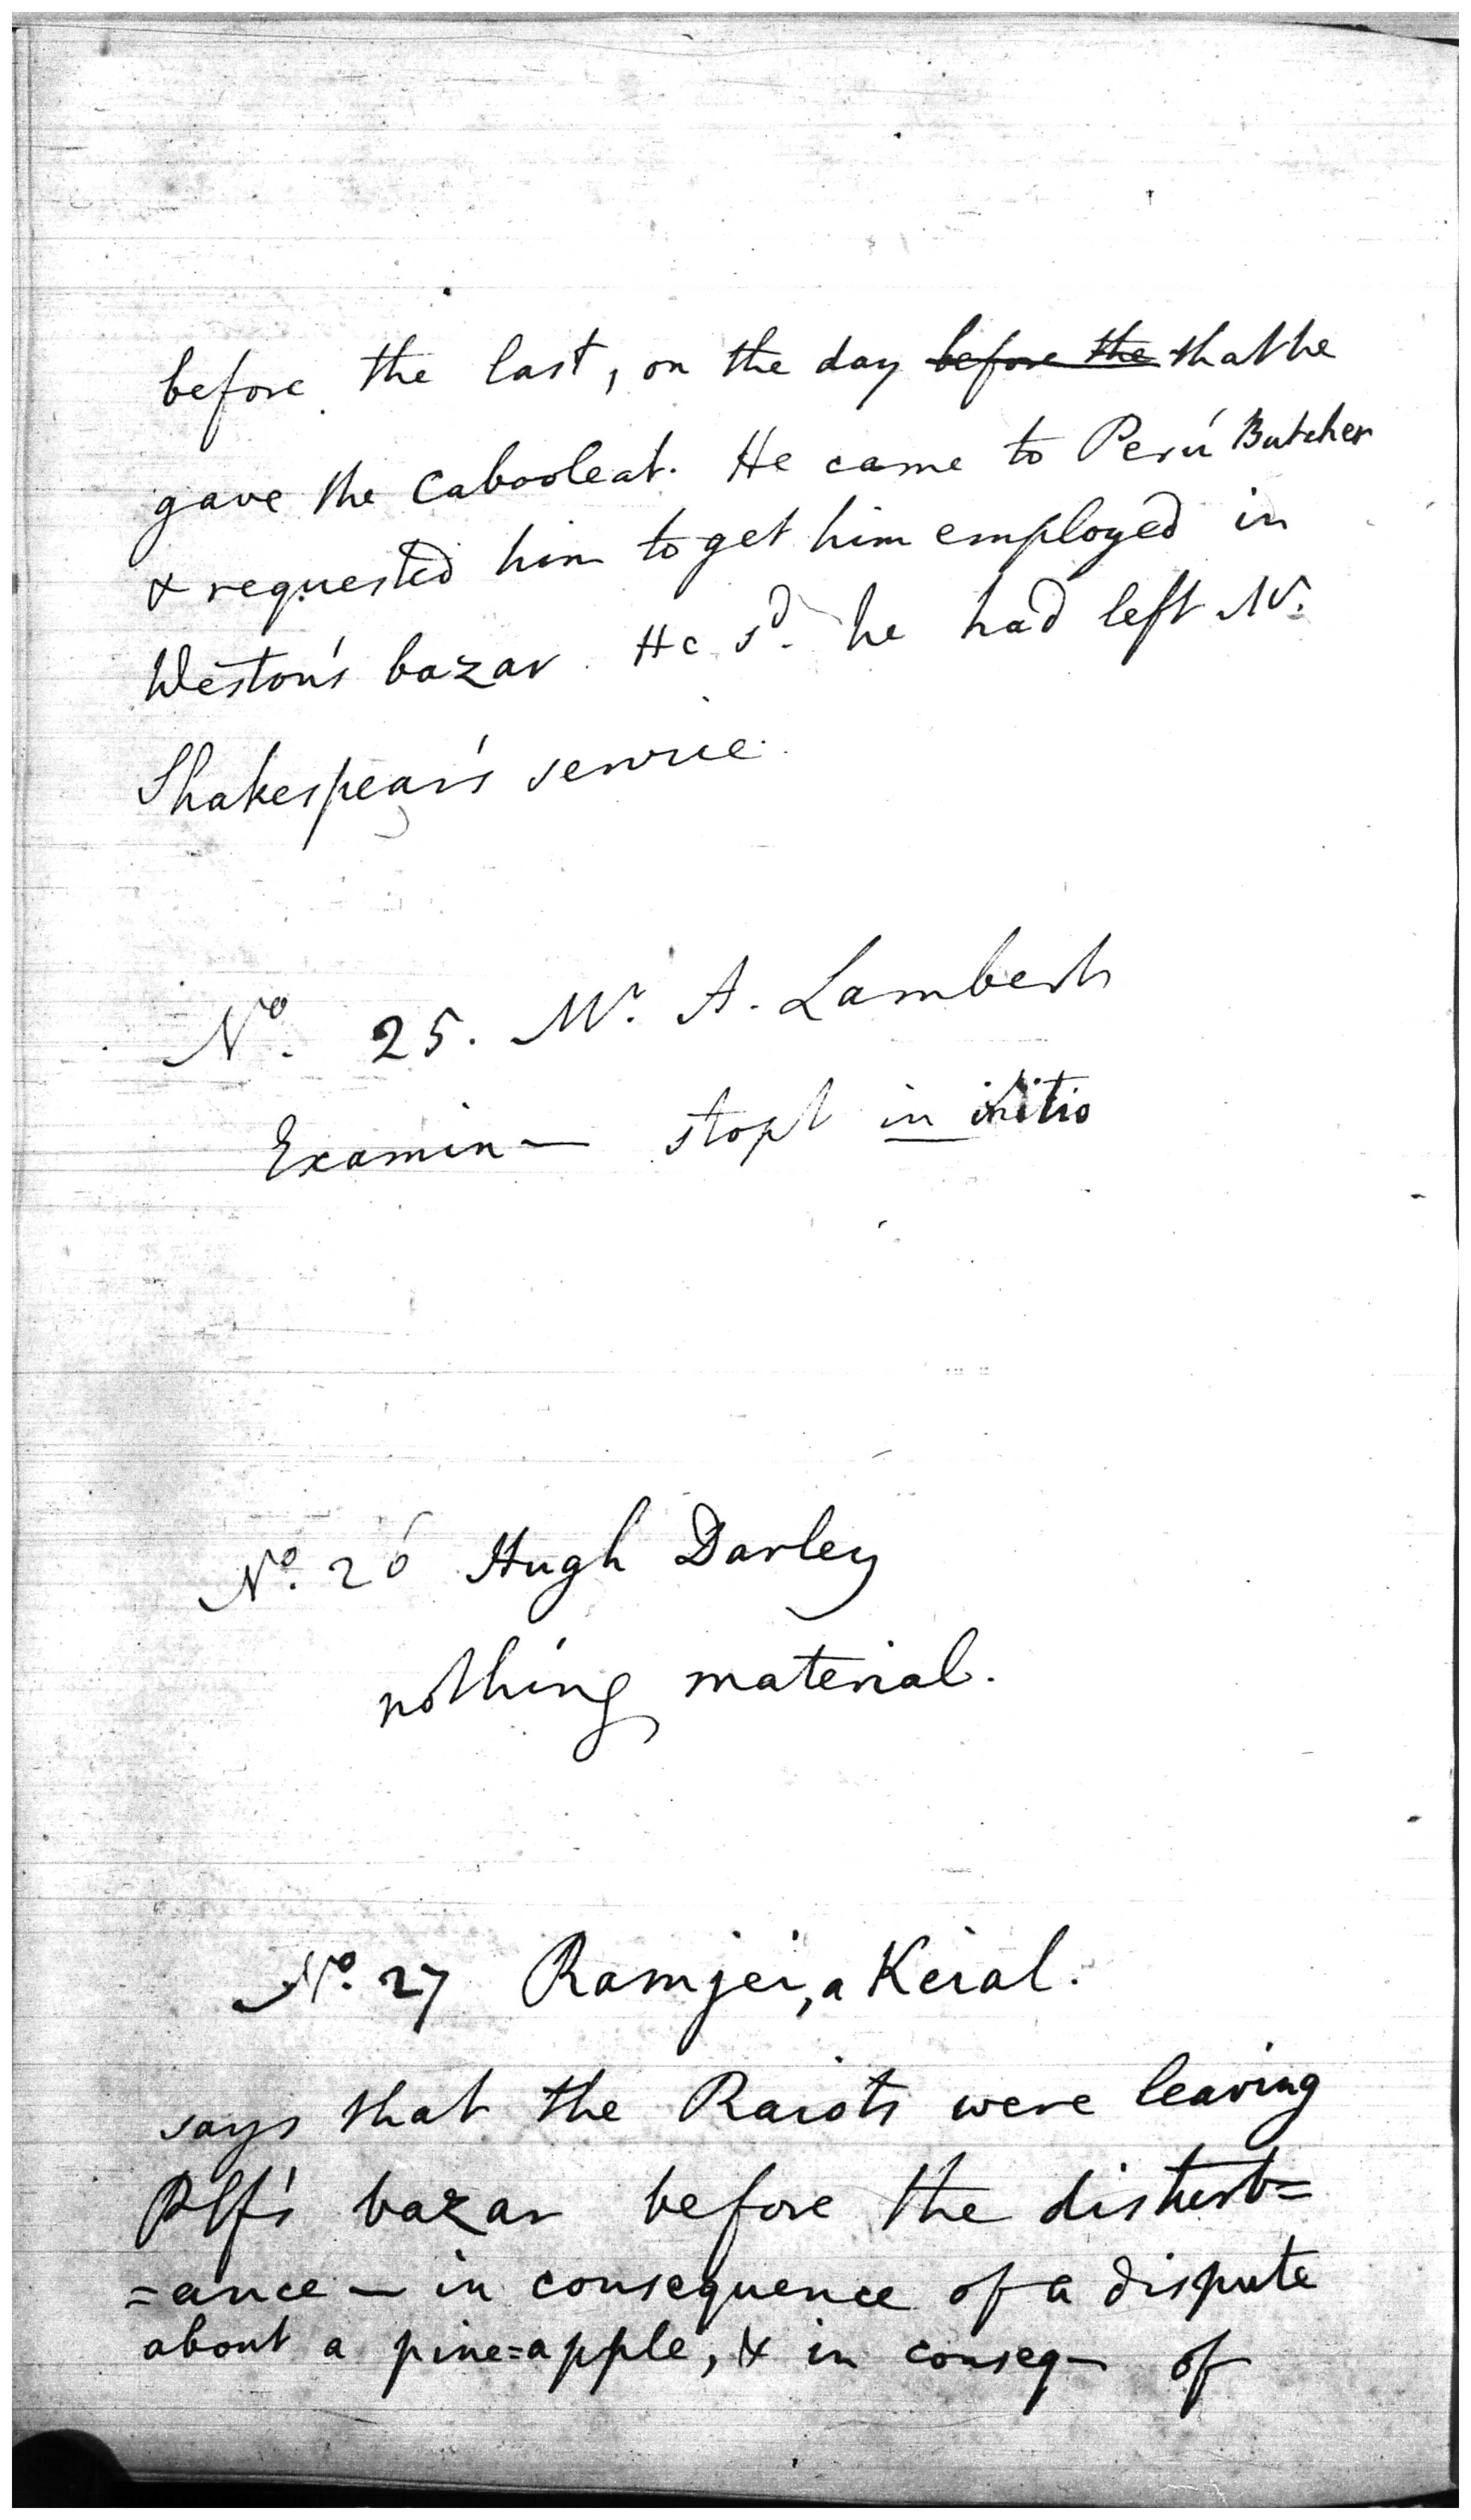 before the last, on the day before the that he
gave the Cabooleat. He came to Perú Butcher
& requested him to get him employed in
Weston's bazar. He sd. he had left Mr.
Shakespear's service.
No. 25. Mr. A. Lambert
Examin— stopt in initio
No. 26 Hugh Darley
nothing material.
No. 27 Ramjei, a Keial.
says that the Raiots were leaving
Plf's bazar before the disturb=
=ance — in consequence of a dispute
about a pine=apple, & in conseq— of